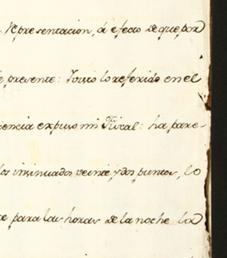 Representacion, á efecto de que por
presente: Visto lo referido en el
iencia expuso mi Fiscal: ha pare-
los insinuados veinte y dos puntos, lo
para las horas de la noche la